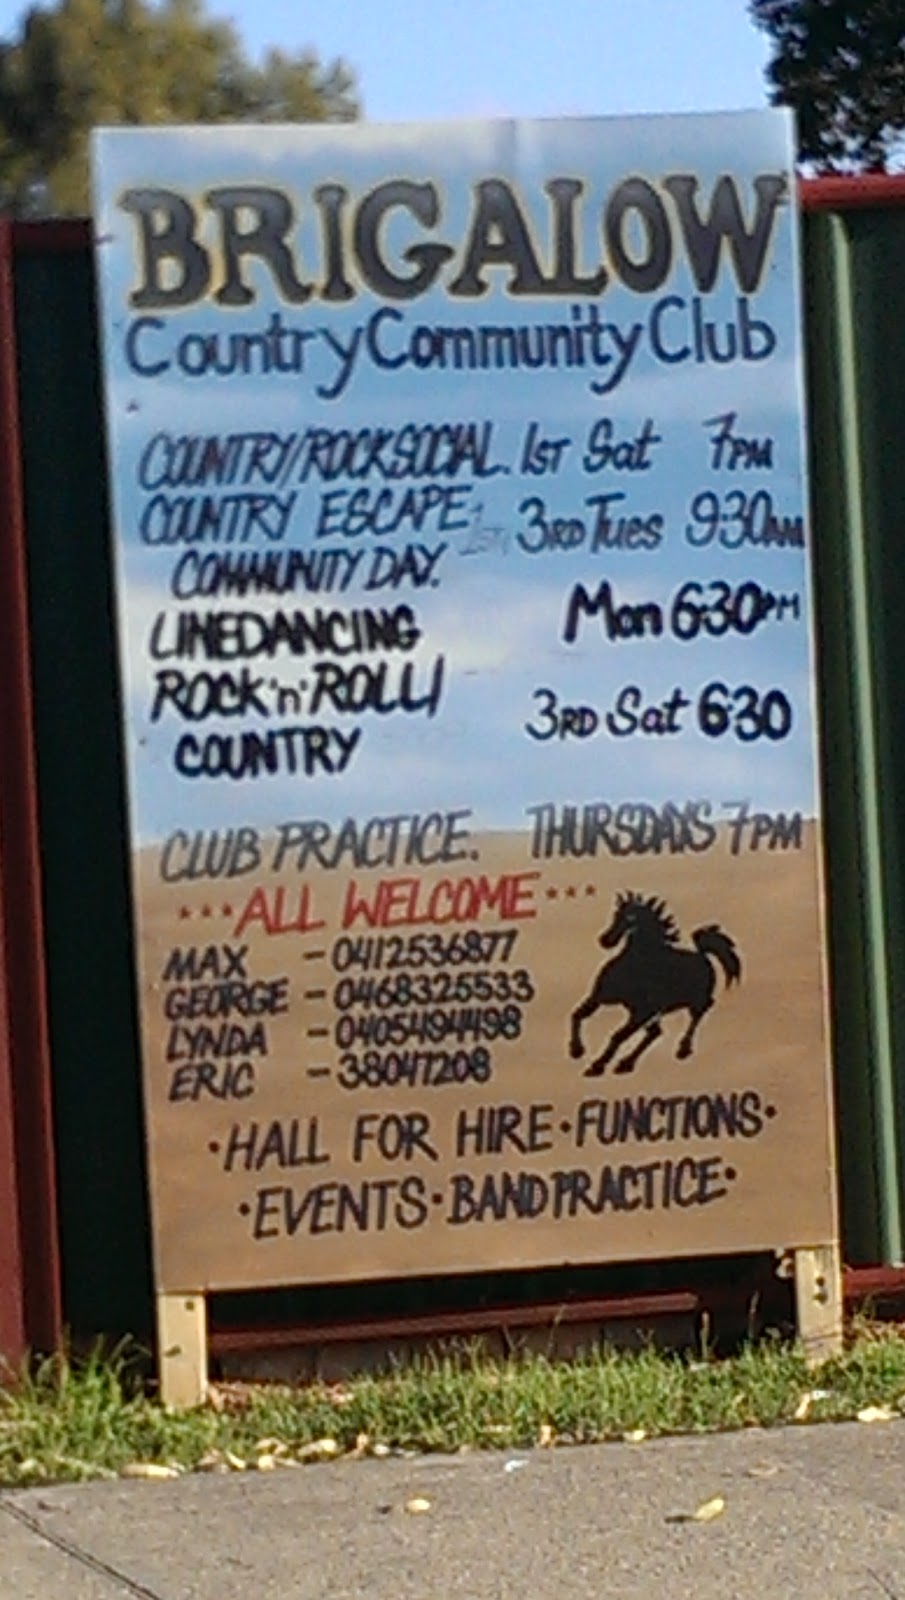 BRIGALOW
Country Community Club
COUNTRY/ROCK SOCIAL. 1ST Sat 7PM
COUNTRY ESCAPE: 3RD Tues 9:30AM
COMMUNITY DAY.
LINEDANCING Mon 6:30PM
ROCK 'n' ROLL/
COUNTRY 3RD Sat 6:30
CLUB PRACTICE. THURSDAYS 7PM
...ALL WELCOME...
MAX - 0412536877
GEORGE - 0468325533
LYNDA - 0405494498
ERIC - 38047208
·HALL FOR HIRE·FUNCTIONS·
·EVENTS·BAND PRACTICE·